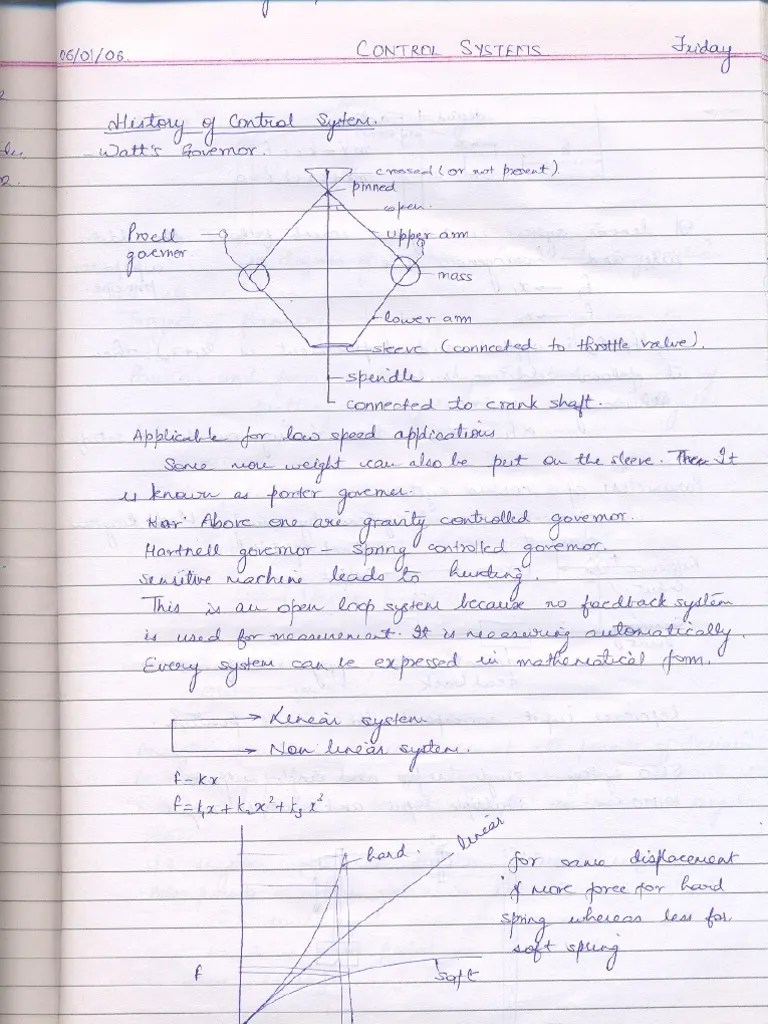 06/01/06
CONTROL SYSTEMS
Friday
History of Control System.
- Watt's Governor.
crossed (or not present).
pinned
open.
Proell
goerner
upper arm
mass
lower arm
sleeve (connected to throttle valve).
spendle
connected to crank shaft.
Applicable for low speed applications
Some more weight can also be put on the sleeve. Then It
is known as porter governer.
Above one are gravity controlled governor.
Hartnell governor - spring controlled governor.
sensitive machine leads to hunting.
This is an open loop system because no feedback system
is used for measurement. It is measuring automatically.
Every system can be expressed in mathematical form.
→ Linear system
→ Non linear system.
f = kx
f = k₁x + k₂x² + k₃x²
hard.
linear
for same displacement
if more force for hard
spring whereas less for
soft spring
f
soft